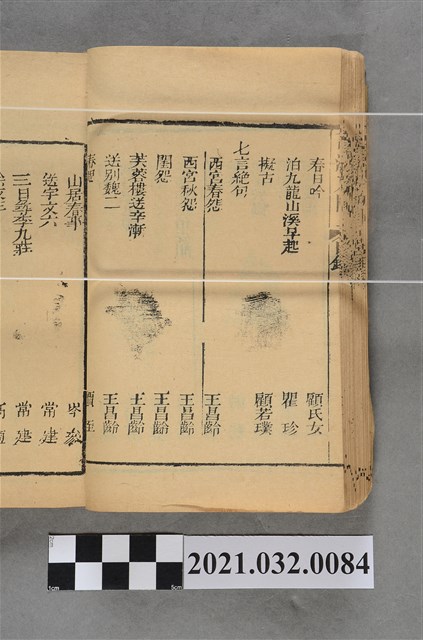 春日吟 顧氏女
泊九龍山溪早起 瞿珍
擬古 顧若璞
七言絶句
西宮春怨 王昌齡
西宮秋怨 王昌齡
閨怨 王昌齡
芙蓉樓送辛漸 王昌齡
送别魏二 王昌齡
春怨 賈至
山居春事 岑參
送宇文六 常建
三日尋李九莊 常建
2cm
1cm
5cm
2021.032.0084